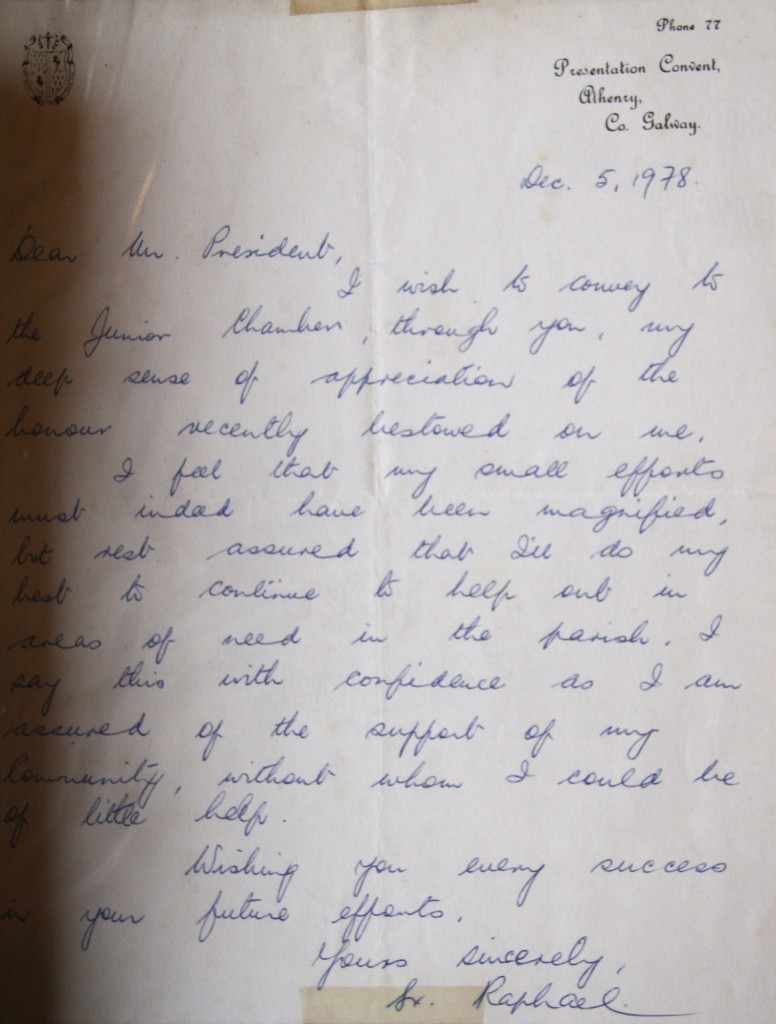 Phone 77
Presentation Convent,
Athenry,
Co. Galway.
Dec. 5, 1978.
Dear Mr. President,
I wish to convey to
the Junior Chamber, through you, my
deep sense of appreciation of the
honour recently bestowed on me.
I feel that my small efforts
must indeed have been magnified,
but rest assured that I'll do my
best to continue to help out in
areas of need in the parish. I
say this with confidence as I am
assured of the support of my
Community, without whom I could be
of little help.
Wishing you every success
in your future efforts.
Yours sincerely,
Sr. Raphael.